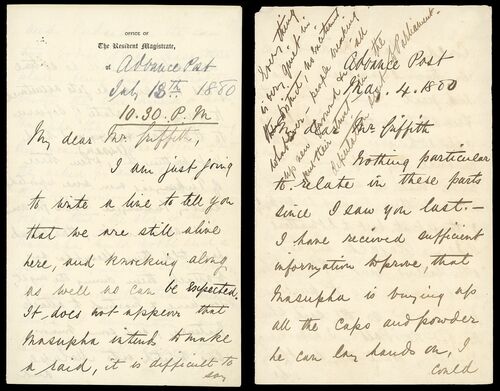 OFFICE OF
The Resident Magistrate,
at Advance Post
July 13th 1880
10.30. P.M
My dear Mr Griffith,
I am just going
to write a line to tell you
that we are still alive
here, and knocking along
as well as can be expected.
It does not appear that
Masupha intends to make
a raid, it is difficult to
say
Every thing
is very quiet in
the District no excitement
whatever. People making
up new
put their the
of Parliament.
Advance Post
May. 4. 1880
My dear Mr Griffith
Nothing particular
to relate in these parts
since I saw you last. —
I have received sufficient
information to prove, that
Masupha is buying up
all the caps and powder
he can lay hands on, I
could